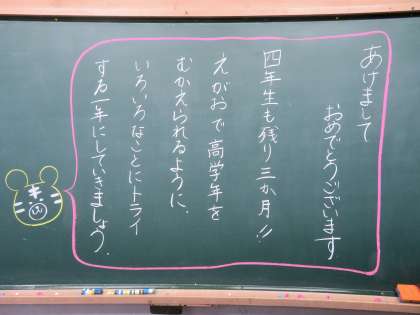 あけまして
おめでとうございます
四年生も残り三か月!!
えがおで高学年を
むかえられるように、
いろいろなことにトライ
する一年にしていきましょう。